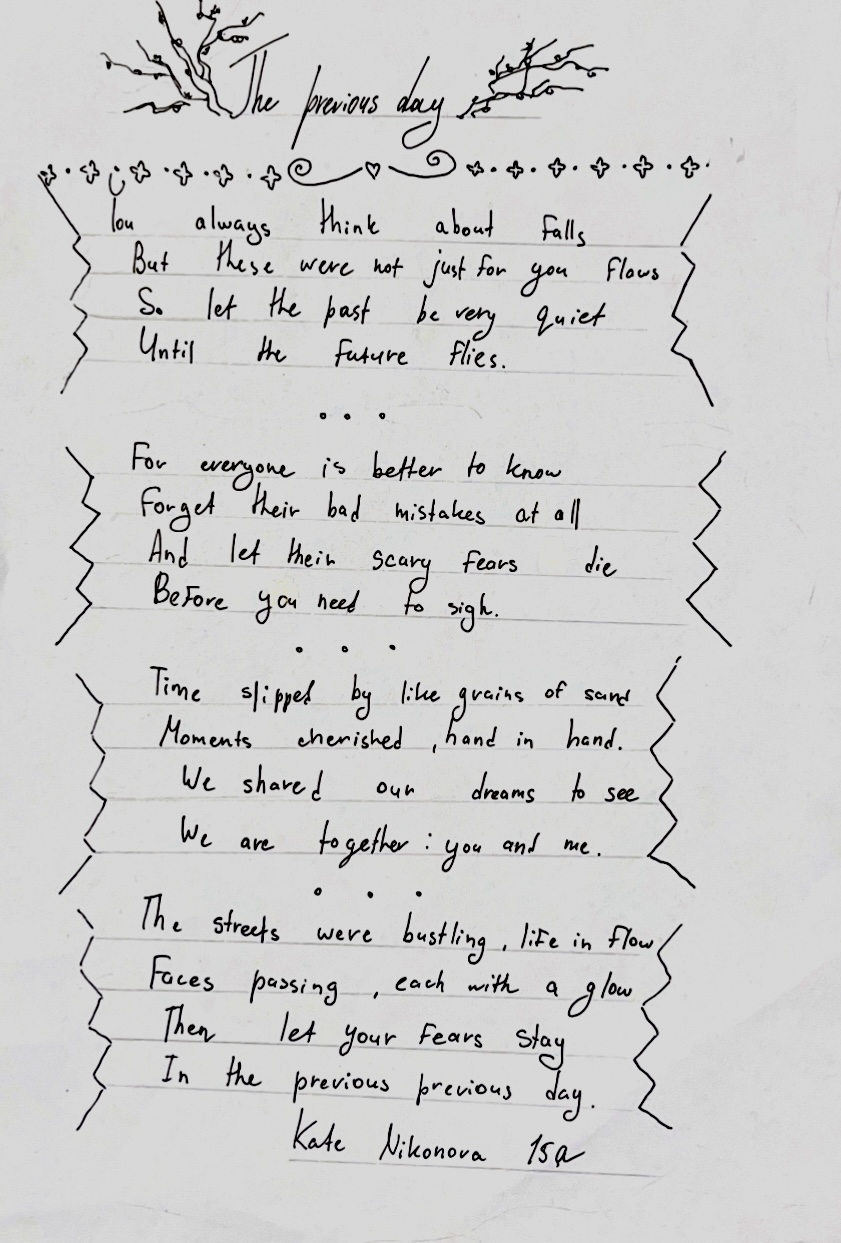 The previous day
You always think about falls
But these were not just for you flows
So let the past be very quiet
Until the future flies.
For everyone is better to know
Forget their bad mistakes at all
And let their scary fears die
Before you need to sigh.
Time slipped by like grains of sand
Moments cherished, hand in hand.
We shared our dreams to see
We are together: you and me.
The streets were bustling, life in flow
Faces passing, each with a glow
Then let your fears stay
In the previous previous day.
Kate Nikonova